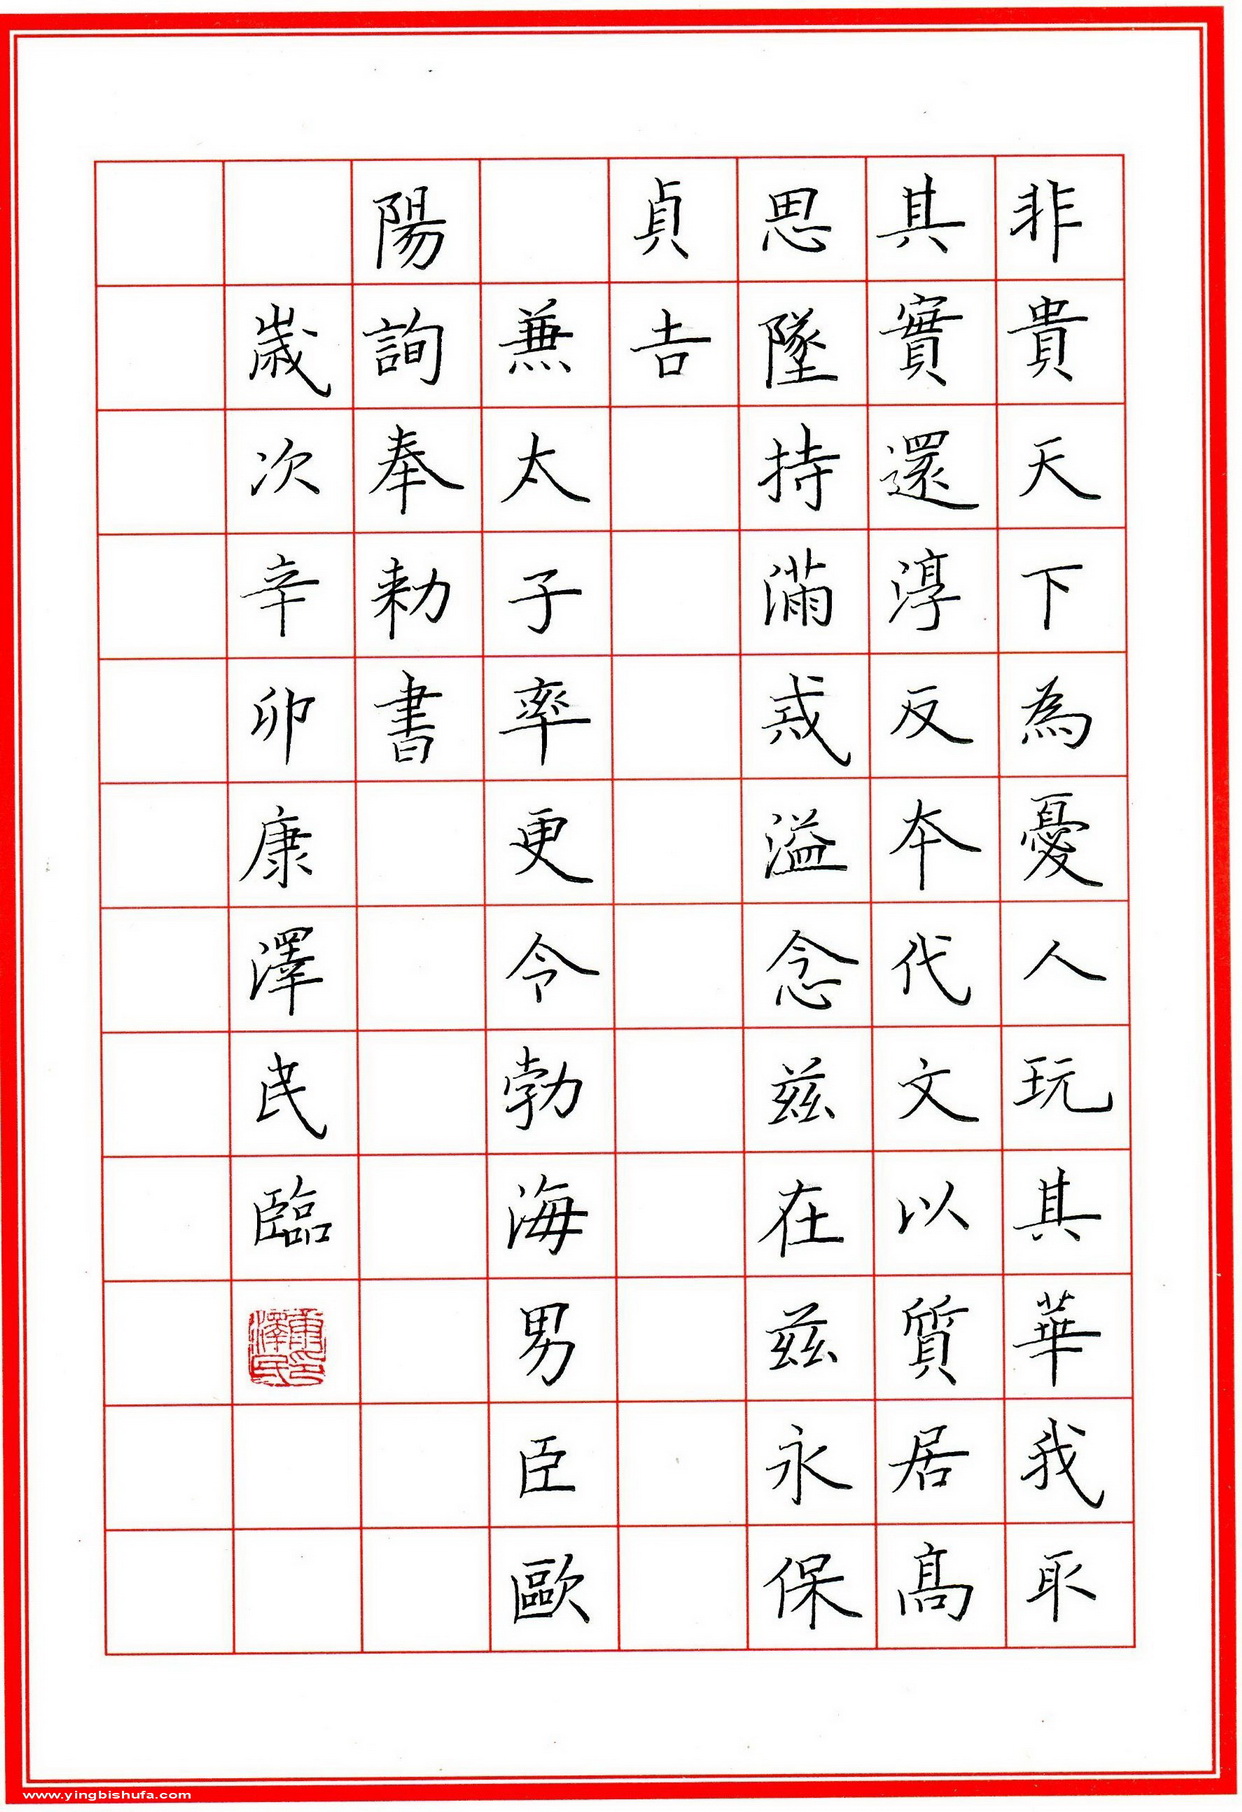 非貴天下為憂人玩其華我取
其實還淳反本代文以質居高
思墜持滿戒溢念茲在茲永保
貞吉
兼太子率更令勃海男臣歐
陽詢奉勅書
歲次辛卯康澤民臨
康澤民印
www.yingbishufa.com